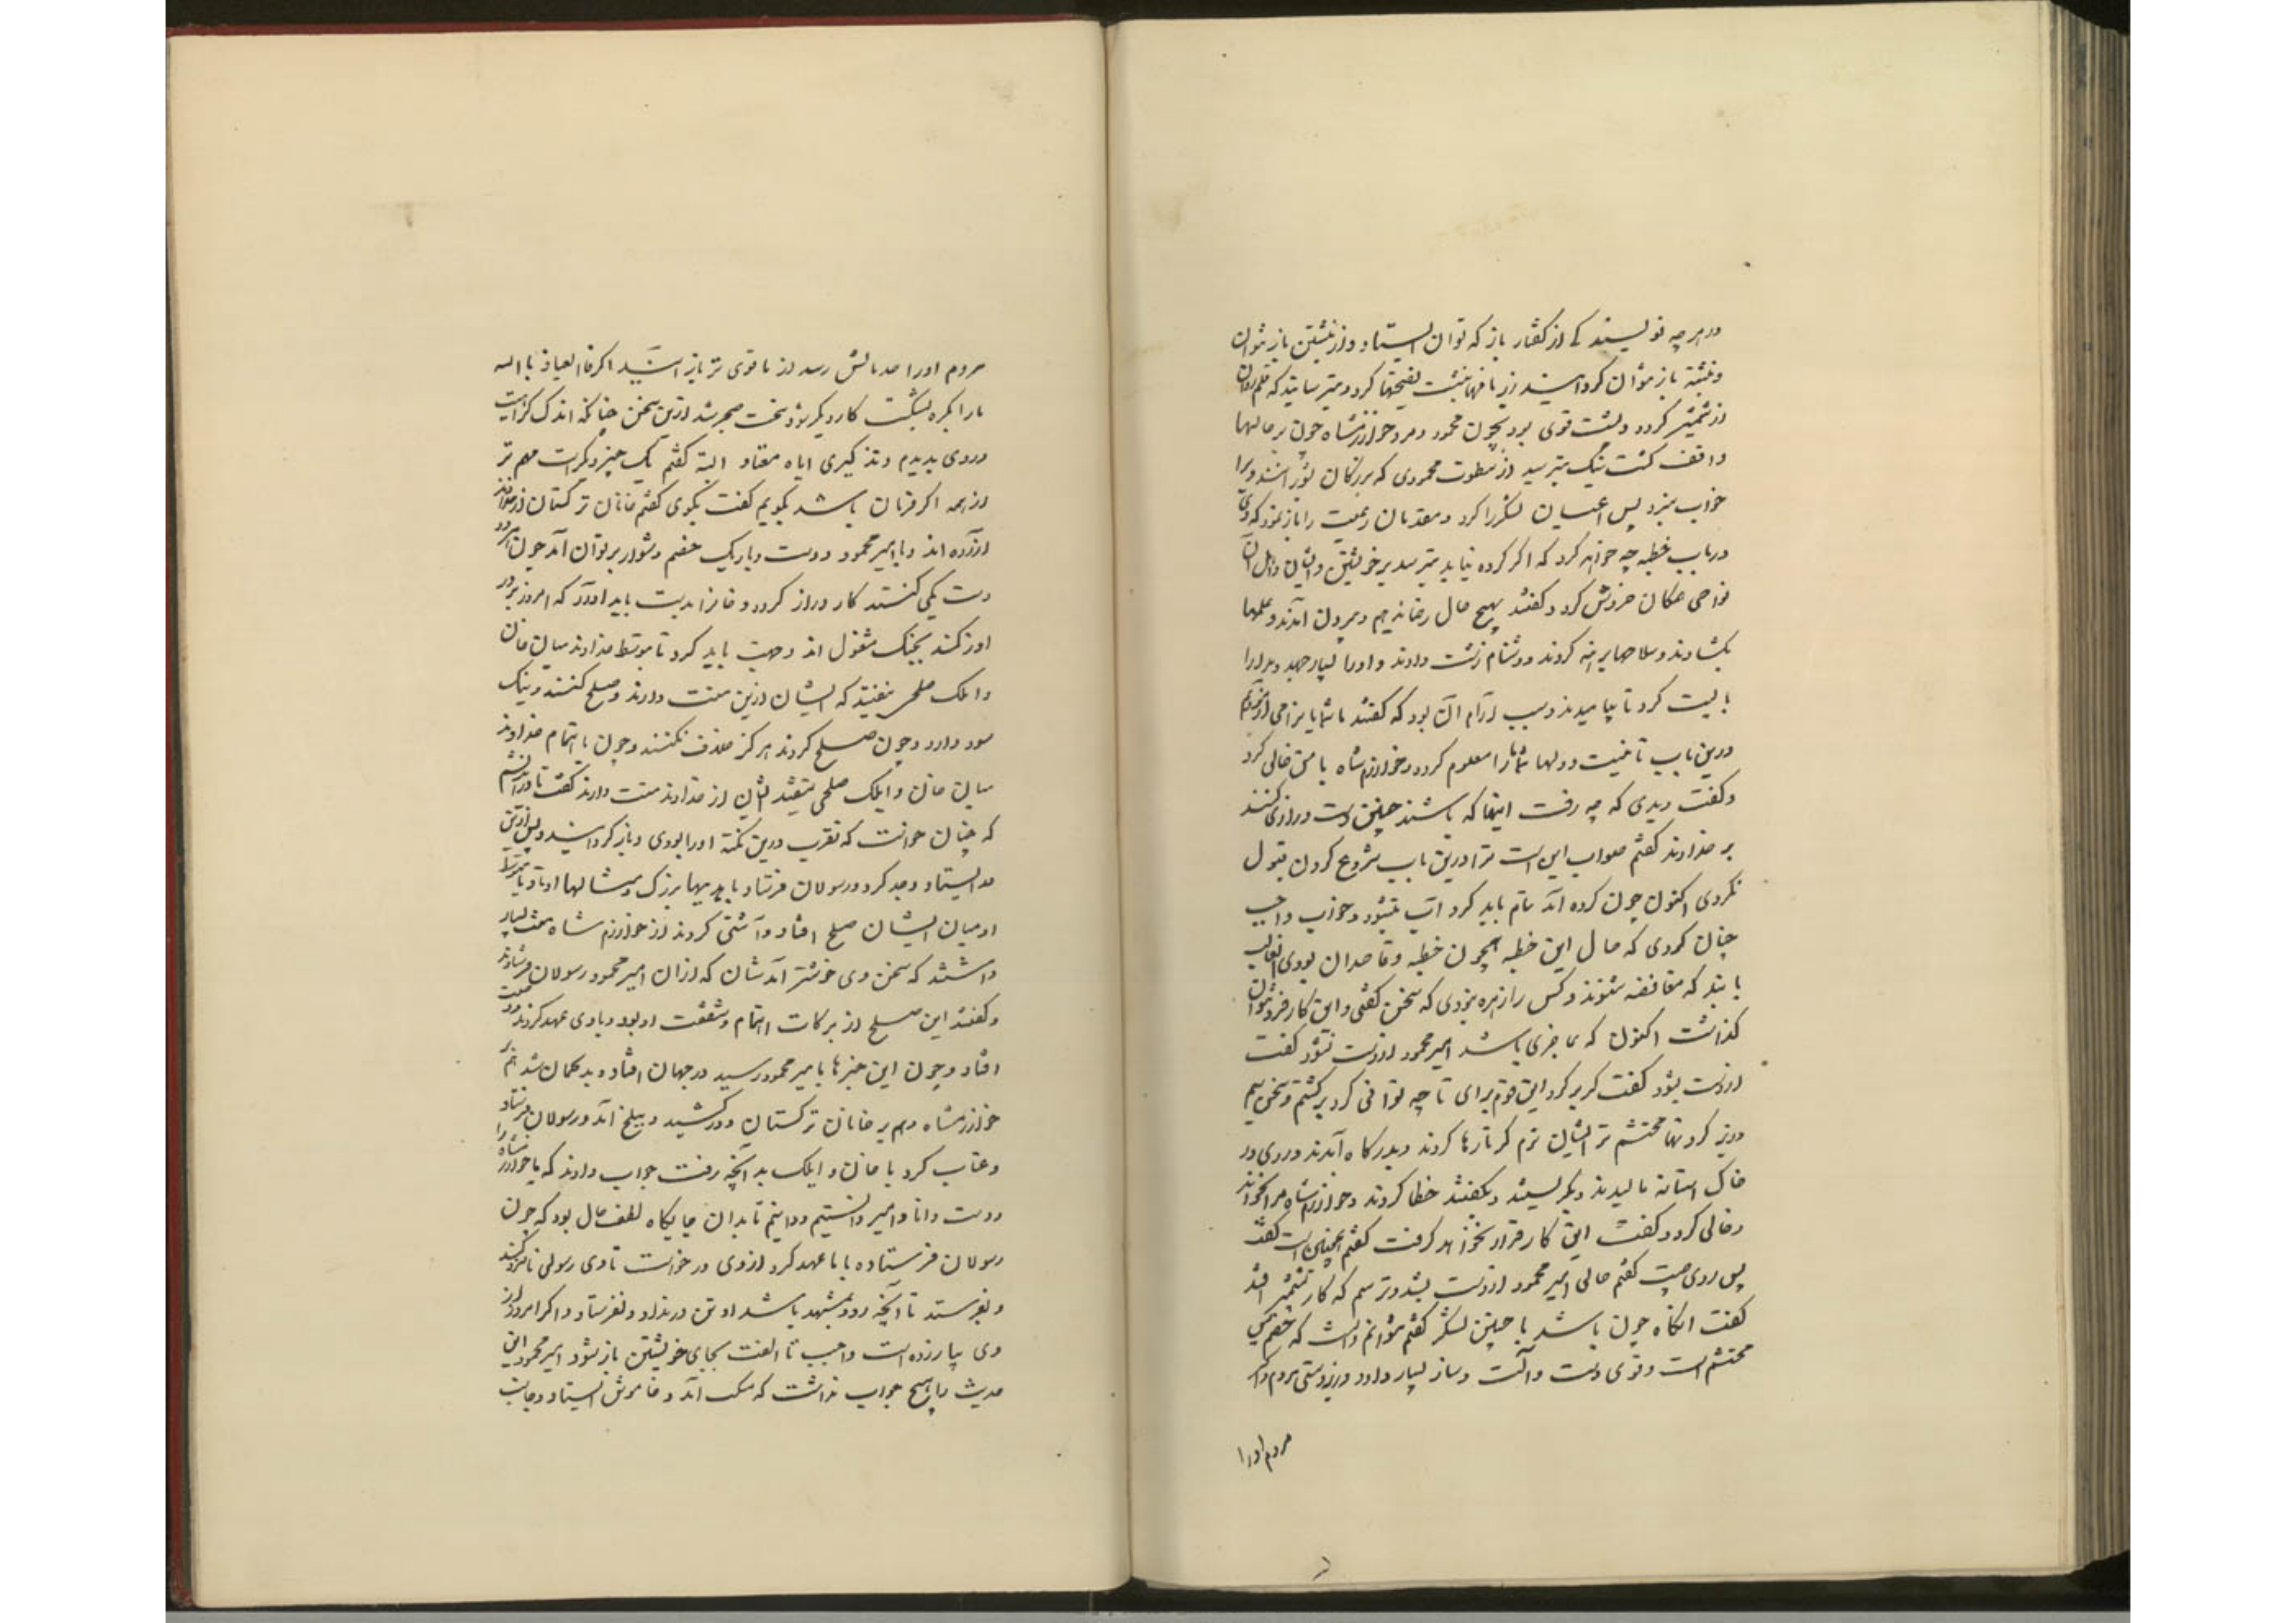 در هرچه نویسند که از گفتار باز که توان ایستاد و از نبشتن باز نتوان
و نبشته باز نتوان گردانید وزیر نامها نبشت و نصیحتها کرد و بترسانید که قلم روان
از شمشیر گردد و پشت قوی بود بچون محمود و مرد خوارزمشاه چون بر حالها
واقف گشت نیک بترسید از سطوت محمودی که بزرگان بشورانند ویرا
خواب نبرد پس اعیان لشکر را کرد و مقدمان رعیت را باز نمود که وی
در باب خطبه چه خواهد کرد که اگر کرده نیاید بترسد بر خویشتن و ایشان و اهل آن
نواحی همگان خروش کردند و گفتند بهیچ حال رضا ندهیم و بیرون آمدند و علمها
بگشادند و سلاحها برهنه کردند و دشنام زشت دادند و او را بسیار جهد و مدارا
بایست کرد تا بیارامیدند و سبب آرام آن بود که گفتند ما شمایان را می‌آزمودیم
درین باب تا نیت و دلهای شما ما را معلوم گردد و خوارزمشاه با من خالی کرد
و گفت دیدی که چه رفت اینها که باشند چنین دست درازی کنند
بر خداوند گفتم صواب این است ترا درین باب شروع کردن قبول
نکردی اکنون چون کرده آمد تمام باید کرد تا آب نشود و خواب واجب
چنان کردی که حال این خطبه همچون خطبه و قاصدان بودی التغلب
بایند که مغافصه شنوند و کس را زهره نبودی که سخن گفتی و این کار فرو نتوان
گذاشت اکنون که عاجزی باشد امیر محمود از دست نشود گفت
از دست بشود گفت گربر گرد این قوم برای تا چه توانی کرد برگشتم و بسخن سیم
و زر گردنها محتشم تر ایشان نرم کردم تا رها کردند و بدرگاه آمدند و روی در
خاک آستانه مالیدند و بگریستند و بگفتند خطا کردند و خوارزمشاه مرا بخواند
و خالی کرد و گفت این کار قرار نخواهد گرفت گفتم همچنین است گفت
پس روی چیست گفتم حالی امیر محمود از دست بشد و ترسم که کار بشمشیر افتد
گفت آنگاه چون باشد با چنین لشکر گفتم نتوانم دانست که خصم بس
محتشم است و قوی دست و آلت و ساز بسیار دارد و از هر دستی مردم و اگر
مردم او را
مردم او را صد مالش رسد از ما قوی تر باز آیند اگر فالعیاذ بالله
ما را یکره بشکست کار دیگر شود سخت ضجر شد ازین سخن چنانکه اندک کراهیت
در وی بدیدم و تذکیری ایاه معتاد البته گفتم یک چیز دیگرست مهم تر
از همه اگر فرمان باشد بگویم گفت بگوی گفتم خانان ترکستان از خداوند
آزرده اند و با امیر محمود دوست و با یک خصم دشوار بر توان آمد چون هر دو
دست یکی کنند کار دراز گردد و خانرا بدست باید آورد که امروز بر در
اوزکند بجنگ مشغول اند و جهد باید کرد تا بتوسط خداوند میان خان
و ایلک صلحی بیفتد که ایشان ازین منت دارند و صلح کنند و نیک
سود دارد و چون صلح کردند هرگز خلاف نکنند و چون باهتمام خداوند
میان خان و ایلک صلحی بیفتد ایشان از خداوند منت دارند گفت تا دراندیشم
که چنان خواست که تقرب درین نکته او را بودی و باز گردانید و پس ازین
مد ایستاد و جد کرد و رسولان فرستاد با هدیهای بزرگ و مثالها داد تا بتوسط
او میان ایشان صلح افتاد و آشتی کردند از خوارزم شاه منت بسیار
داشتند که سخن وی خوشتر آمدشان که از آن امیر محمود رسولان فرستادند
و گفتند این صلح از برکات اهتمام و شفقت او بود و با وی عهد کردند
افتاد و چون این خبرها بامیر محمود رسید در جهان افتاد و بدگمان شد هم بر
خوارزمشاه و هم بر خانان ترکستان و درکشید و ببلخ آمد و رسولان فرستاد
و عتاب کرد با خان و ایلک بدانچه رفت جواب دادند که ما خوارزمشاه را
دوست و داماد امیر دانستیم و دانیم تا بدان جایگاه لطف حال بود که چون
رسولان فرستاده با ما عهد کرد از وی درخواست تا وی رسولی نامزد کند
و بفرستد تا آنچه رود بمشهد باشد او تن در نداد و نفرستاد و اگر امروز از
وی بیازرده است واجب تا الفت بجای خویشتن باز شود امیر محمود این
حدیث را هیچ جواب نداشت که مسکت آمد و خاموش ایستاد و جانب